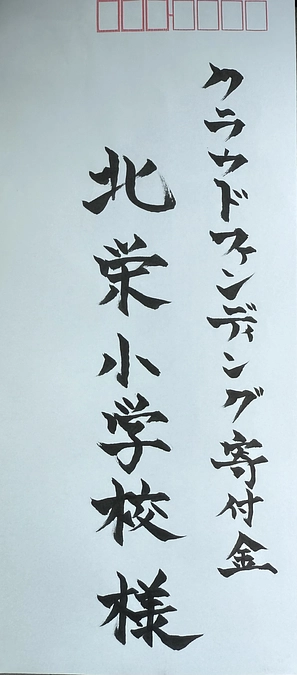 クラウドファンディング寄付金
北栄小学校様